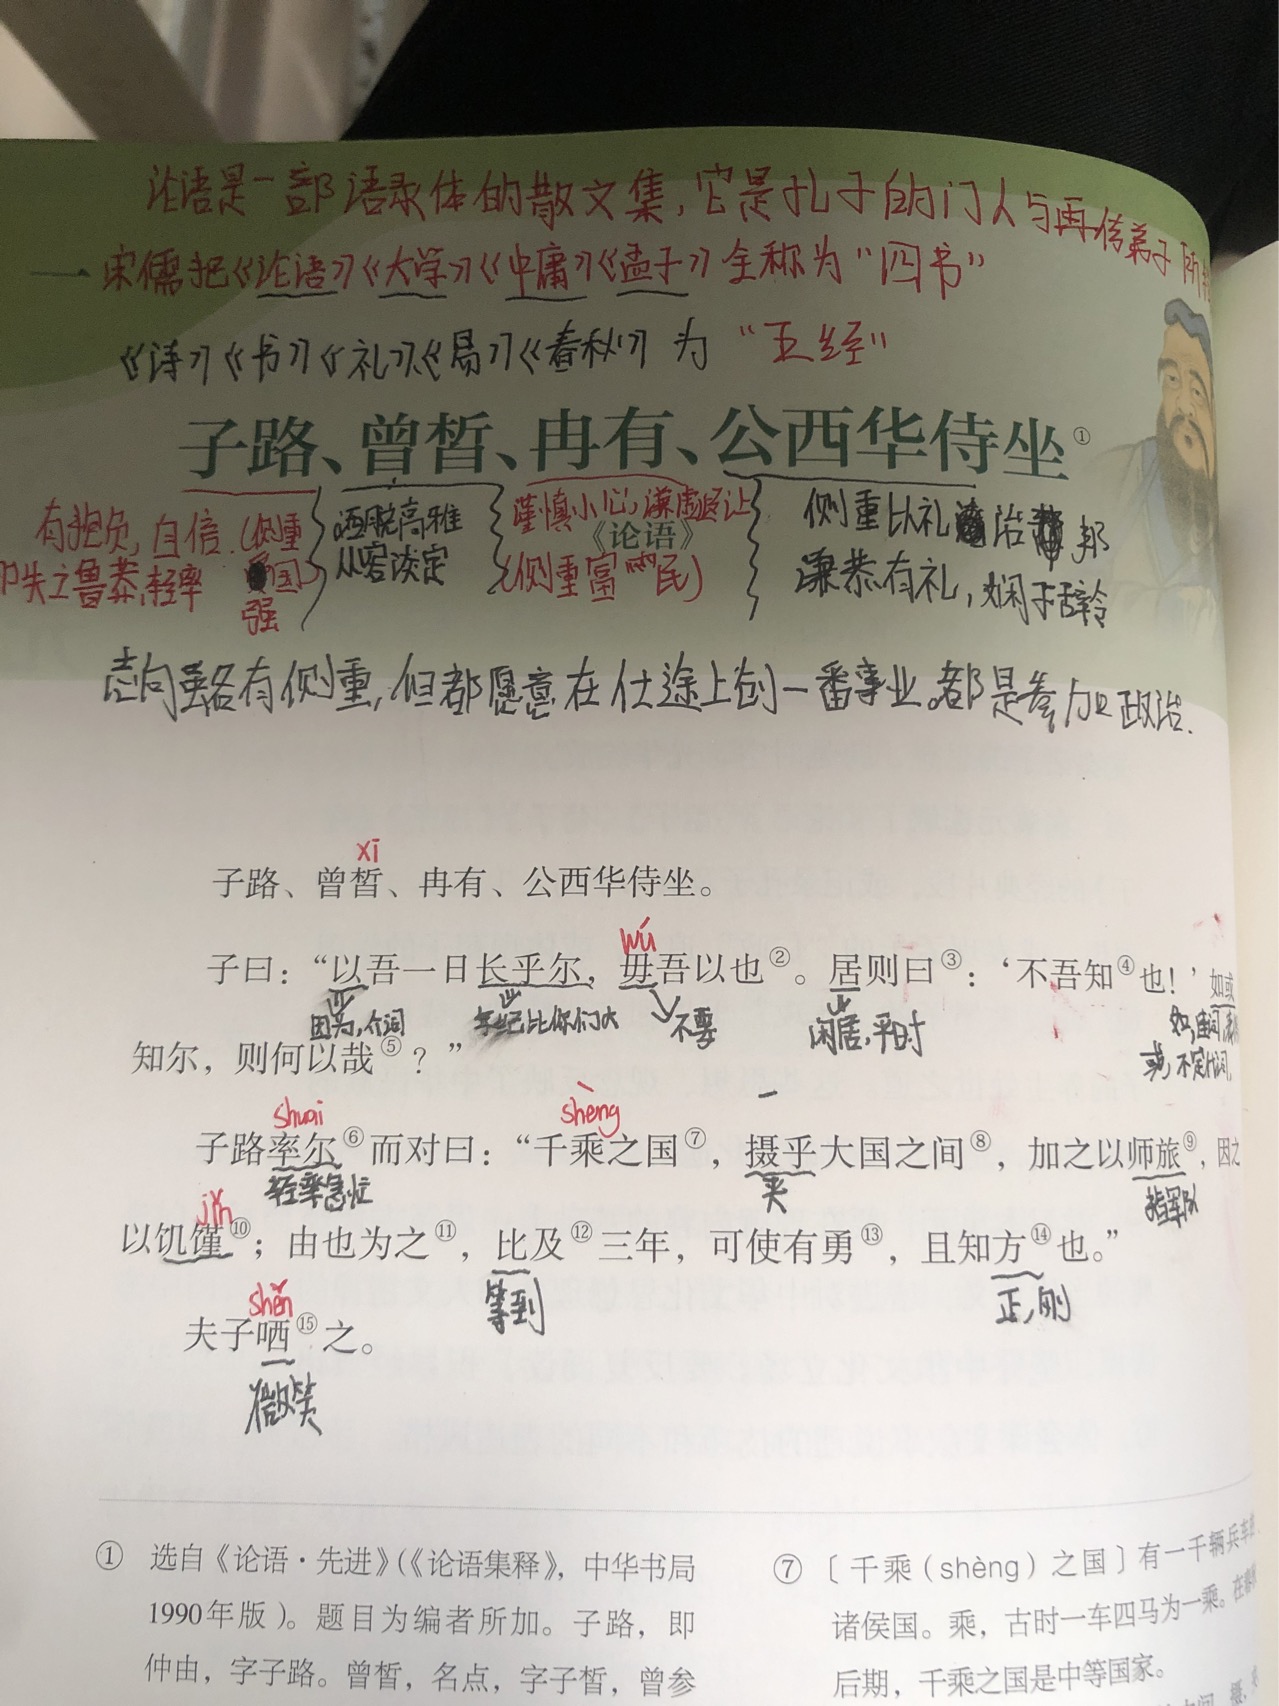 论语是一部语录体的散文集,它是孔子的门人与再传弟子所
一宋儒把《论语》《大学》《中庸》《孟子》全称为“四书”
《诗》《书》《礼》《易》《春秋》为“五经”
子路、曾皙、冉有、公西华侍坐①
《论语》
有抱负,自信.(侧重
国
强
失之鲁莽,轻率
洒脱高雅
从容淡定
谨慎小心,谦虚 让
(侧重富民)
侧重以礼治邦
谦恭有礼,娴于辞令
志向虽各有侧重,但都愿意在仕途上创一番事业。都是参加政治.
xī
子路、曾皙、冉有、公西华侍坐。
wú
子曰：“以吾一日长乎尔，毋吾以也②。居则曰③：‘不吾知④也！’如或
因为,介词
年纪比你们大
不要
闲居,平时
如,连词,
或,不定代词,
知尔，则何以哉⑤？”
shuài
shèng
子路率尔⑥而对曰：“千乘之国⑦，摄乎大国之间⑧，加之以师旅⑨，因之
轻率急忙
夹
指军队
jǐn
以饥馑⑩；由也为之⑪，比及⑫三年，可使有勇⑬，且知方⑭也。”
等到
正,刚
shěn
夫子哂⑮之。
微笑
① 选自《论语·先进》（《论语集释》，中华书局
1990年版）。题目为编者所加。子路，即
仲由，字子路。曾皙，名点，字子皙，曾参
⑦〔千乘（shèng）之国〕有一千辆兵车
诸侯国。乘，古时一车四马为一乘。在春秋
后期，千乘之国是中等国家。